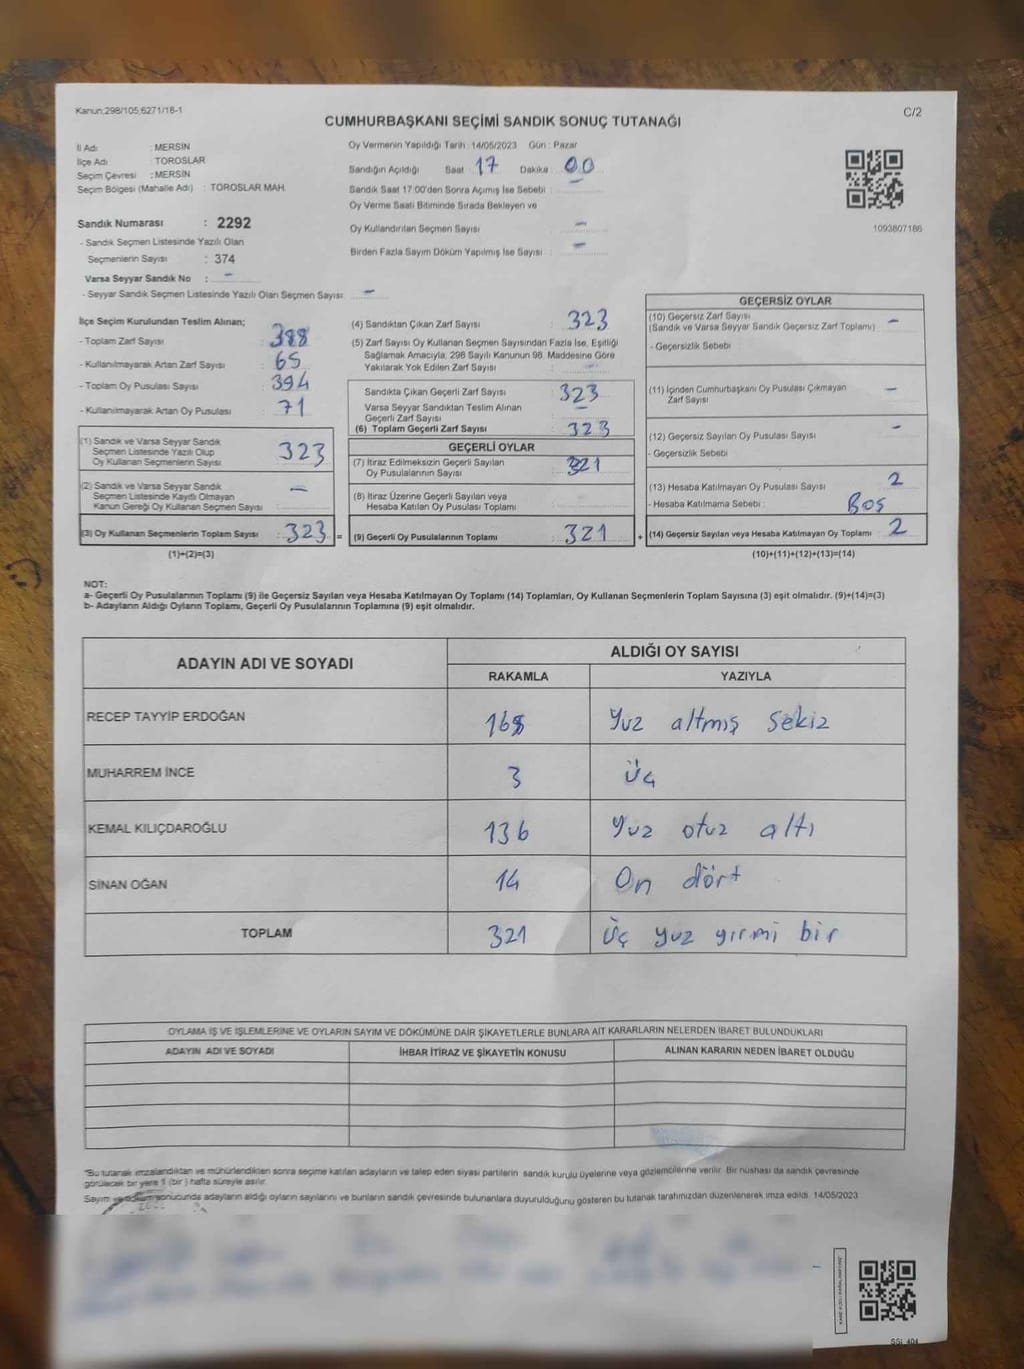 Kanun:298/105;6271/18-1
C/2
CUMHURBAŞKANI SEÇİMİ SANDIK SONUÇ TUTANAĞI
İl Adı : MERSİN
İlçe Adı : TOROSLAR
Seçim Çevresi : MERSİN
Seçim Bölgesi (Mahalle Adı) : TOROSLAR MAH.
Oy Vermenin Yapıldığı Tarih : 14/05/2023 Gün : Pazar
Sandığın Açıldığı Saat 17 Dakika : 00
Sandık Saat 17:00'den Sonra Açımış İse Sebebi :
Oy Verme Saati Bitiminde Sırada Bekleyen ve
Oy Kullandırılan Seçmen Sayısı : -
Birden Fazla Sayım Döküm Yapılmış İse Sayısı : -
1093807186
Sandık Numarası : 2292
- Sandık Seçmen Listesinde Yazılı Olan
Seçmenlerin Sayısı : 374
Varsa Seyyar Sandık No : -
- Seyyar Sandık Seçmen Listesinde Yazılı Olan Seçmen Sayısı: -
İlçe Seçim Kurulundan Teslim Alınan;
- Toplam Zarf Sayısı : 388
- Kullanılmayarak Artan Zarf Sayısı : 65
- Toplam Oy Pusulası Sayısı : 394
- Kullanılmayarak Artan Oy Pusulası : 71
(1) Sandık ve Varsa Seyyar Sandık
Seçmen Listesinde Yazılı Olup
Oy Kullanan Seçmenlerin Sayısı : 323
(2) Sandık ve Varsa Seyyar Sandık
Seçmen Listesinde Kayıtlı Olmayan
Kanun Gereği Oy Kullanan Seçmen Sayısı : -
(3) Oy Kullanan Seçmenlerin Toplam Sayısı : 323 =
(1)+(2)=(3)
(4) Sandıktan Çıkan Zarf Sayısı : 323
(5) Zarf Sayısı Oy Kullanan Seçmen Sayısından Fazla İse, Eşitliği
Sağlamak Amacıyla, 298 Sayılı Kanunun 98. Maddesine Göre
Yakılarak Yok Edilen Zarf Sayısı : -
Sandıkta Çıkan Geçerli Zarf Sayısı : 323
Varsa Seyyar Sandıktan Teslim Alınan
Geçerli Zarf Sayısı : -
(6) Toplam Geçerli Zarf Sayısı : 323
GEÇERLİ OYLAR
(7) İtiraz Edilmeksizin Geçerli Sayılan
Oy Pusulalarının Sayısı : 321
(8) İtiraz Üzerine Geçerli Sayılan veya
Hesaba Katılan Oy Pusulası Toplamı :
(9) Geçerli Oy Pusulalarının Toplamı : 321 +
GEÇERSİZ OYLAR
(10) Geçersiz Zarf Sayısı
(Sandık ve Varsa Seyyar Sandık Geçersiz Zarf Toplamı) : -
- Geçersizlik Sebebi :
(11) İçinden Cumhurbaşkanı Oy Pusulası Çıkmayan
Zarf Sayısı : -
(12) Geçersiz Sayılan Oy Pusulası Sayısı : -
- Geçersizlik Sebebi :
(13) Hesaba Katılmayan Oy Pusulası Sayısı : 2
- Hesaba Katılmama Sebebi : Boş
(14) Geçersiz Sayılan veya Hesaba Katılmayan Oy Toplamı : 2
(10)+(11)+(12)+(13)=(14)
NOT:
a- Geçerli Oy Pusulalarının Toplamı (9) ile Geçersiz Sayılan veya Hesaba Katılmayan Oy Toplamı (14) Toplamları, Oy Kullanan Seçmenlerin Toplam Sayısına (3) eşit olmalıdır. (9)+(14)=(3)
b- Adayların Aldığı Oyların Toplamı, Geçerli Oy Pusulalarının Toplamına (9) eşit olmalıdır.
ADAYIN ADI VE SOYADI
ALDIĞI OY SAYISI
RAKAMLA YAZIYLA
RECEP TAYYİP ERDOĞAN 168 Yuz altmış sekiz
MUHARREM İNCE 3 Üç
KEMAL KILIÇDAROĞLU 136 Yuz otuz altı
SİNAN OĞAN 14 On dört
TOPLAM 321 Üç yuz yırmi bir
OYLAMA İŞ VE İŞLEMLERİNE VE OYLARIN SAYIM VE DÖKÜMÜNE DAİR ŞİKAYETLERLE BUNLARA AİT KARARLARIN NELERDEN İBARET BULUNDUKLARI
ADAYIN ADI VE SOYADI İHBAR İTİRAZ VE ŞİKAYETİN KONUSU ALINAN KARARIN NEDEN İBARET OLDUĞU
"Bu tutanak imzalandıktan ve mühürlendikten sonra seçime katılan adayların ve talep eden siyasi partilerin sandık kurulu üyelerine veya gözlemcilerine verilir. Bir nüshası da sandık çevresinde
görülecek bir yere 1 (bir ) hafta süreyle asılır.
Sayım ve döküm sonucunda adayların aldığı oyların sayılarını ve bunların sandık çevresinde bulunanlara duyurulduğunu gösteren bu tutanak tarafımızdan düzenlenerek imza edildi. 14/05/2023
SSİ_404